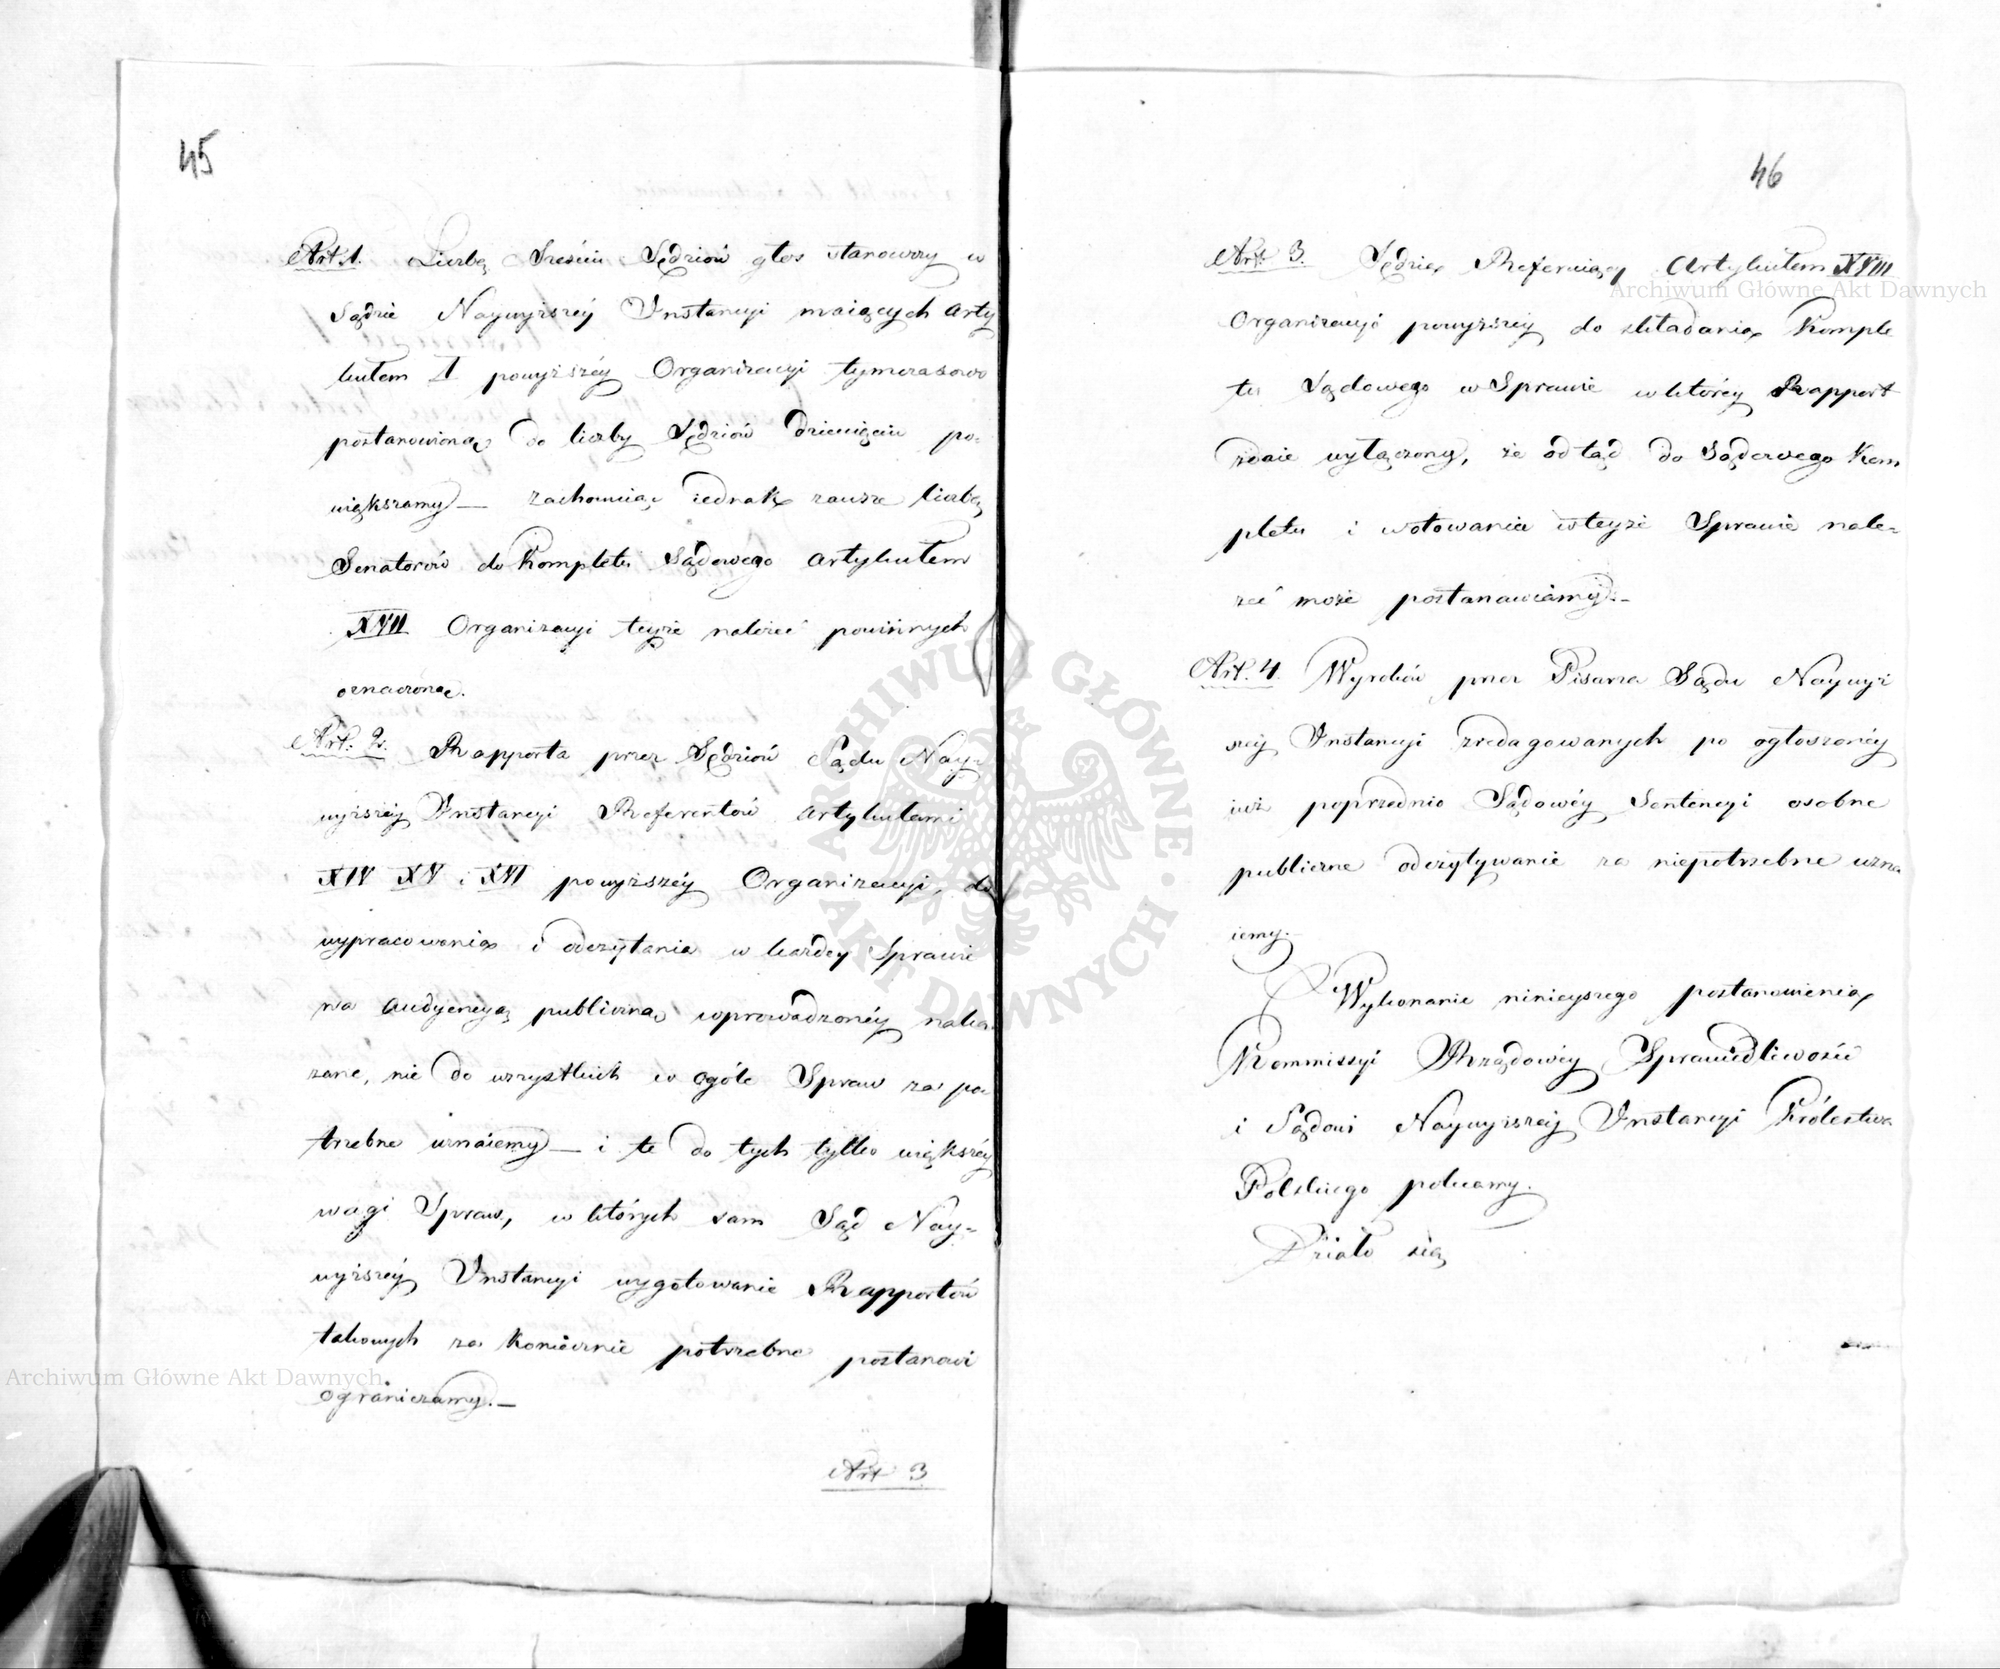 45
Art. 1. Liczbę Sześciu Sędziów głos stanowczy w
Sądzie Naywyższéy Instancyi maiących Arty
kułem I powyższéy Organizacyi tymczasowo
postanowioną do liczby Sędziów dziewięciu po-
większamy — zachowuiąc iednak zawsze liczbę
Senatorów do Kompletu Sądowego Artykułem
XVII Organizacyi teyże należeć powinnych
oznaczoną.
Art. 2. Rapporta przez Sędziów Sądu Nay-
wyższéy Instancyi Referentów Artykułami
XIV XV i XVI powyższéy Organizacyi, do
wypracowania i odczytania w każdey Sprawie
na Audyencyą publiczną wprowadzonéy naka-
zane, nie do wszystkich w ogóle Spraw za po-
trzebne uznaiemy — i te do tych tylko większéy
wagi Spraw, w których sam Sąd Nay-
wyższéy Instancyi wygotowanie Rapportów
takowych za koniecznie potrzebne postanowi
ograniczamy. —
Art 3
46
Art. 3. Sędzia Referuiący Artykułem XVIII
Organizacyi powyższéy do składania Komple
tu Sądowego w Sprawie w któréy Rapport
zdaie wyłączony, że odtąd do Sądowego Kom
pletu i wotowania w teyże Sprawie nale-
żeć może postanawiamy. —
Art. 4. Wyroków przez Pisarza Sądu Naywyż
széy Instancyi zredagowanych po ogłoszonéy
iuż poprzednio Sądowéy Sentencyi osobne
publiczne odczytywanie za niepotrzebne uzna
iemy. —
Wykonanie ninieyszego postanowienia
Kommissyi Rządowéy Sprawiedliwości
i Sądowi Naywyższéy Instancyi Królestwa
Polskiego polecamy.
Działo się
Archiwum Główne Akt Dawnych
Archiwum Główne Akt Dawnych
ARCHIWUM GŁÓWNE · AKT DAWNYCH ·